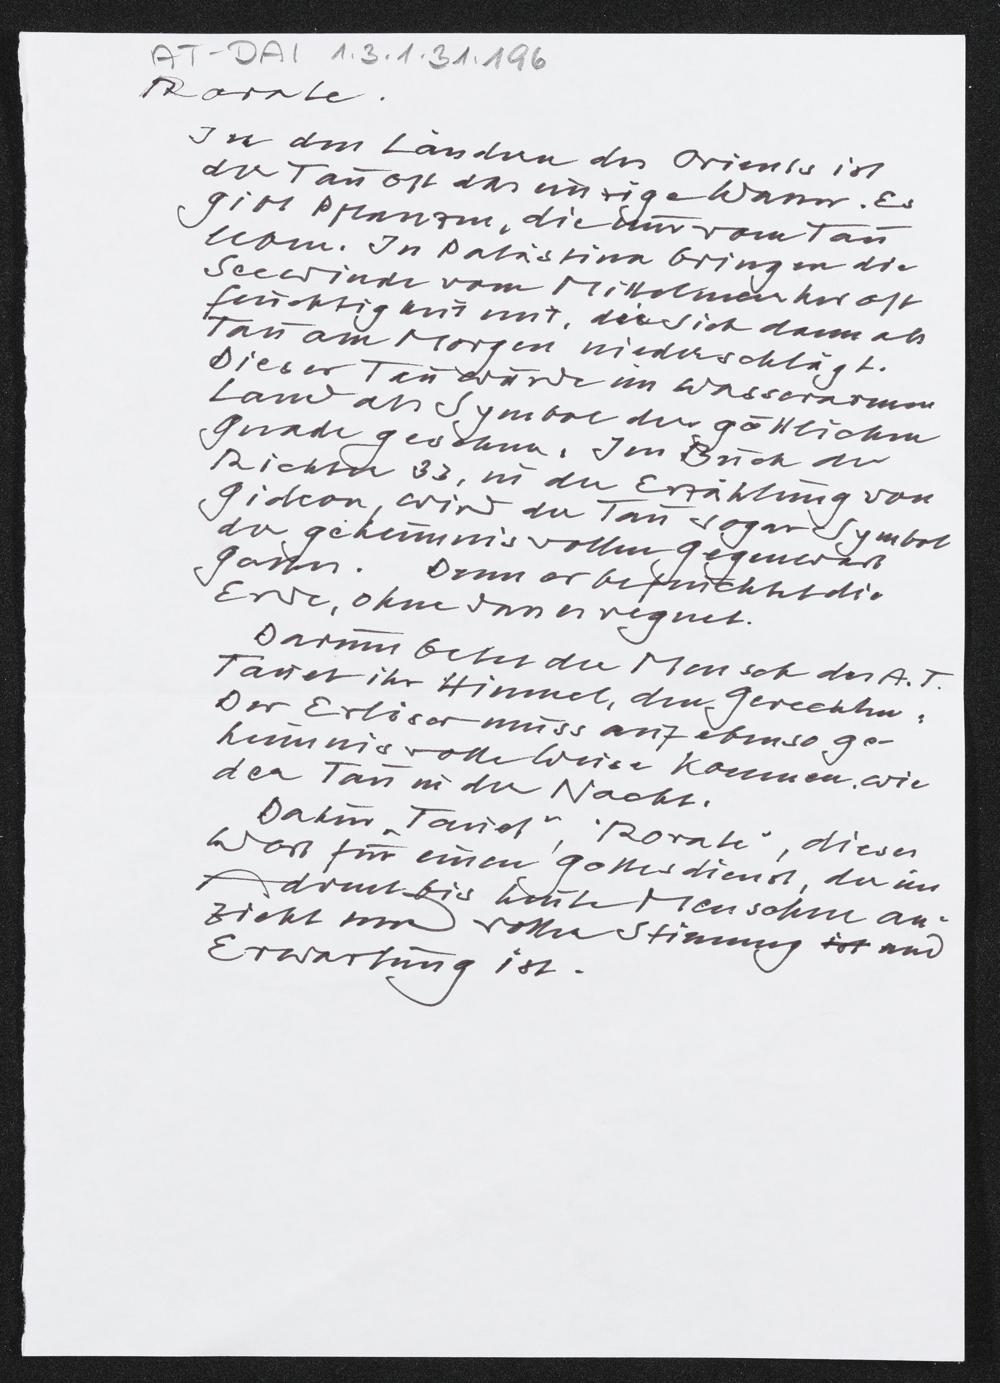 AT-DAI 1.3.1.31.196
Rorate.
In den Ländern des Orients ist
der Tau oft das einzige Wasser. Es
gibt Pflanzen, die nur vom Tau
leben. In Palästina bringen die
Seewinde vom Mittelmeer her oft
Feuchtigkeit mit, die sich dann als
Tau am Morgen niederschlägt.
Dieser Tau wurde im wasserarmen
Land als Symbol der göttlichen
Gnade gesehen. Im Buch der
Richter 33, in der Erzählung von
Gideon, wird der Tau sogar Symbol
der geheimnisvollen Gegenwart
Gottes. Denn er befeuchtet die
Erde, ohne dass es regnet.
Darum betet der Mensch des A.T.
Tauet ihr Himmel, den Gerechten.
Der Erlöser muss auf ebenso ge-
heimnisvolle Weise kommen, wie
der Tau in der Nacht.
Daher „Tauet", "Rorate", dieses
Wort für einen Gottesdienst, der im
Advent bis heute Menschen an-
zieht und voller Stimmung ist und
Erwartung ist.